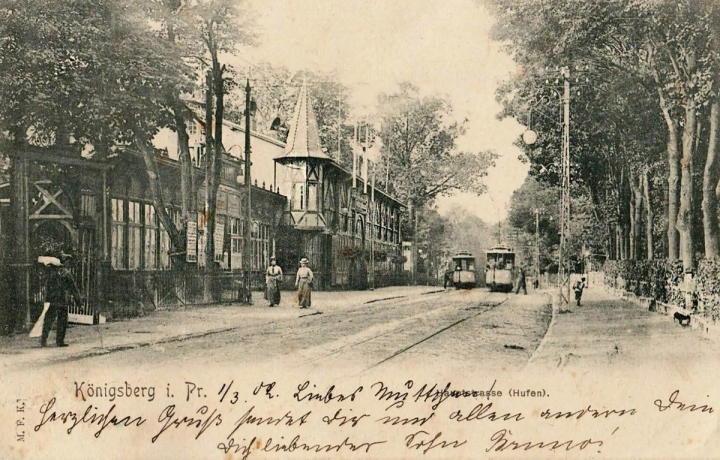 Königsberg i. Pr. 1/3. 02. Liebes Muttchen! Hauptstrasse (Hufen).
Herzlichen Gruß sendet Dir und allen andern Dein
Dich liebender Sohn Bruno.
M. F. K.